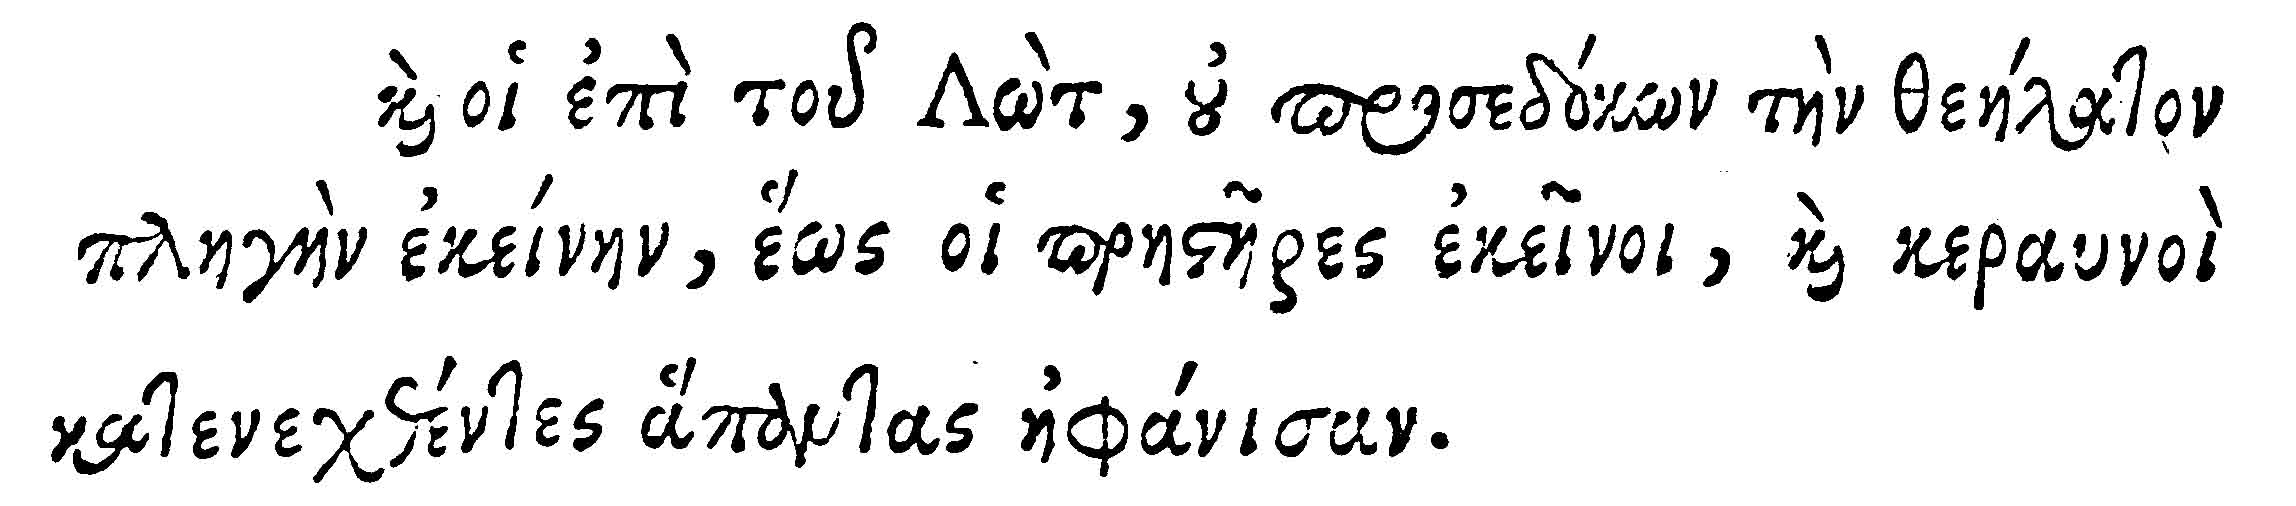 ϗ̀ οἱ ἐπὶ τοῦ Λὼτ, ȣ̓ ϖροσεδόκων τὴν θεήλατον
πληγὴν ἐκείνην, ἕως οἱ ϖρηϛῆρες ἐκεῖνοι, ϗ̀ κεραυνοὶ
κατενεχθέντες ἅπαντας ἠφάνισαν.